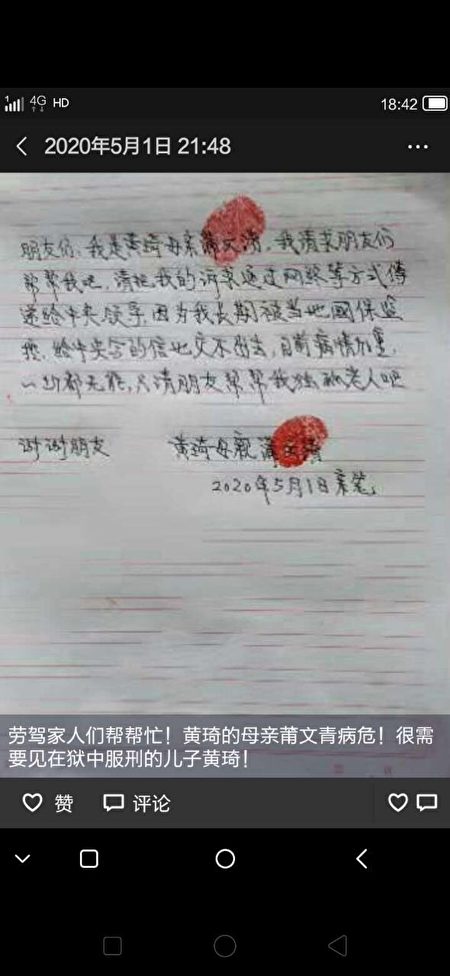 1 4G HD 18:42
2020年5月1日 21:48
朋友们，我是黄琦母亲蒲文清，我请求朋友们
帮帮我吧，请把我的诉求通过网路等方式传
递给中央领导，因为我长期被当地國保监
控，给中央写的信也交不出去，目前病情加重，
一切都无能，只请朋友帮帮我独孤老人吧
谢谢朋友 黄琦母亲蒲文清
2020年5月1日亲笔
劳驾家人们帮帮忙！黄琦的母亲莆文青病危！很需
要见在狱中服刑的儿子黄琦！
赞 评论